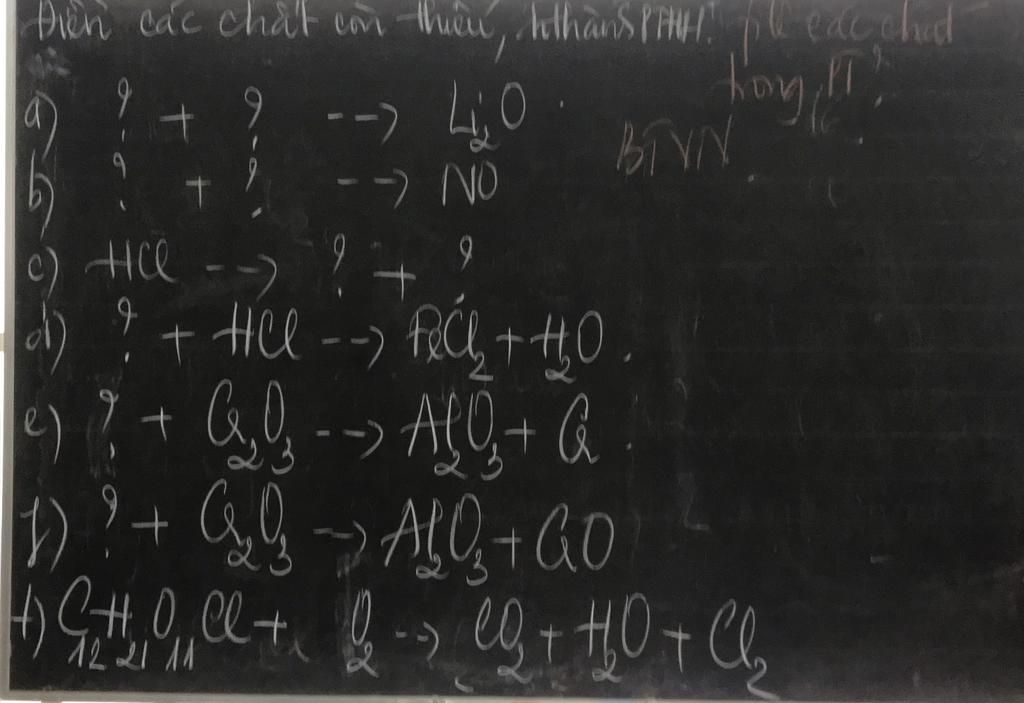 Điền các chất còn thiếu, hthànsPTHH! flê các chất
trong PT?
BTVN
a) ? + ? --> Li₂O
b) ? + ? --> NO
c) HCl --> ? + ?
d) ? + HCl --> FeCl₂ + H₂O.
e) ? + Cr₂O₃ --> Al₂O₃ + Cr
f) ? + Cr₂O₃ --> Al₂O₃ + CrO
t) C₁₂H₂₁O₁₁Cl + O₂ --> CO₂ + H₂O + Cl₂